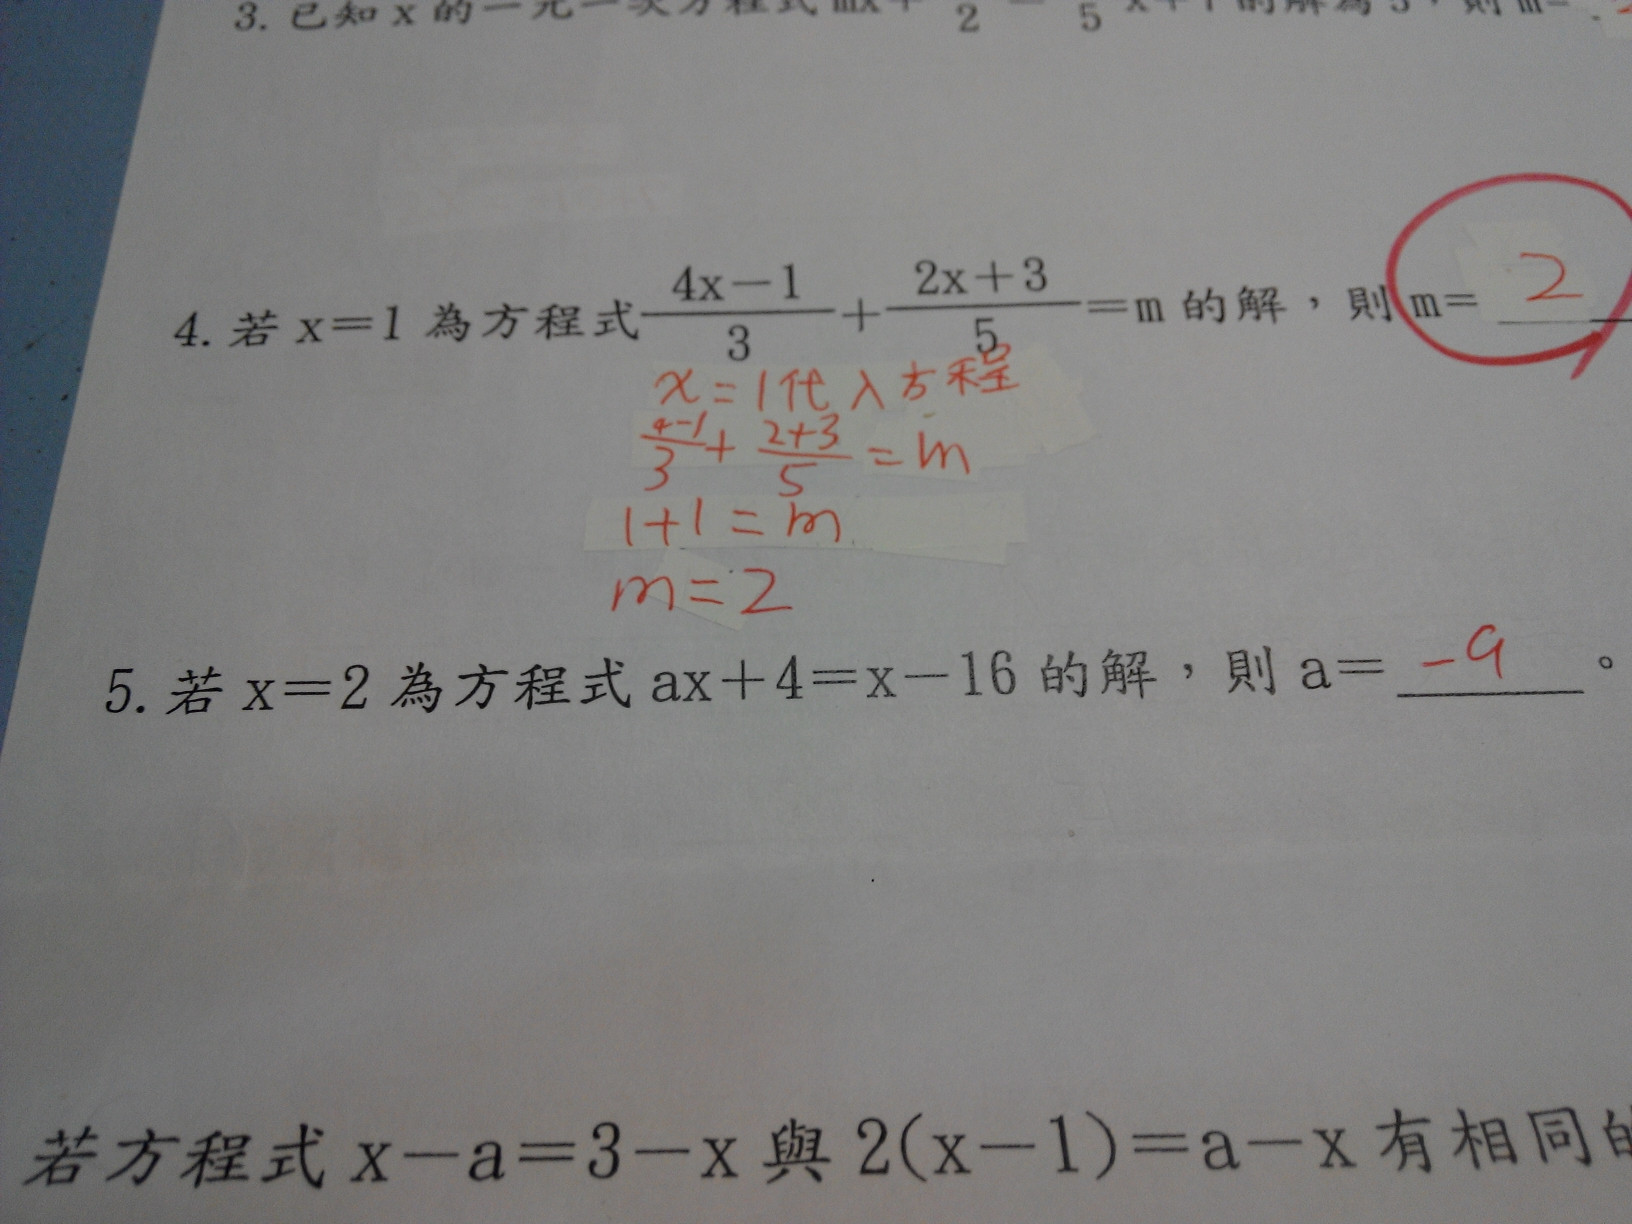 3. 已知 x 的一元一次方程式 mx+ 2 - 5 x+1 的解為 5,則 m=
4. 若 x=1 為方程式 \frac{4x-1}{3}+\frac{2x+3}{5}=m 的解,則 m= 2
x=1代入方程
\frac{4-1}{3}+\frac{2+3}{5}=m
1+1=m
m=2
5. 若 x=2 為方程式 ax+4=x-16 的解,則 a= -9 。
若方程式 x-a=3-x 與 2(x-1)=a-x 有相同的